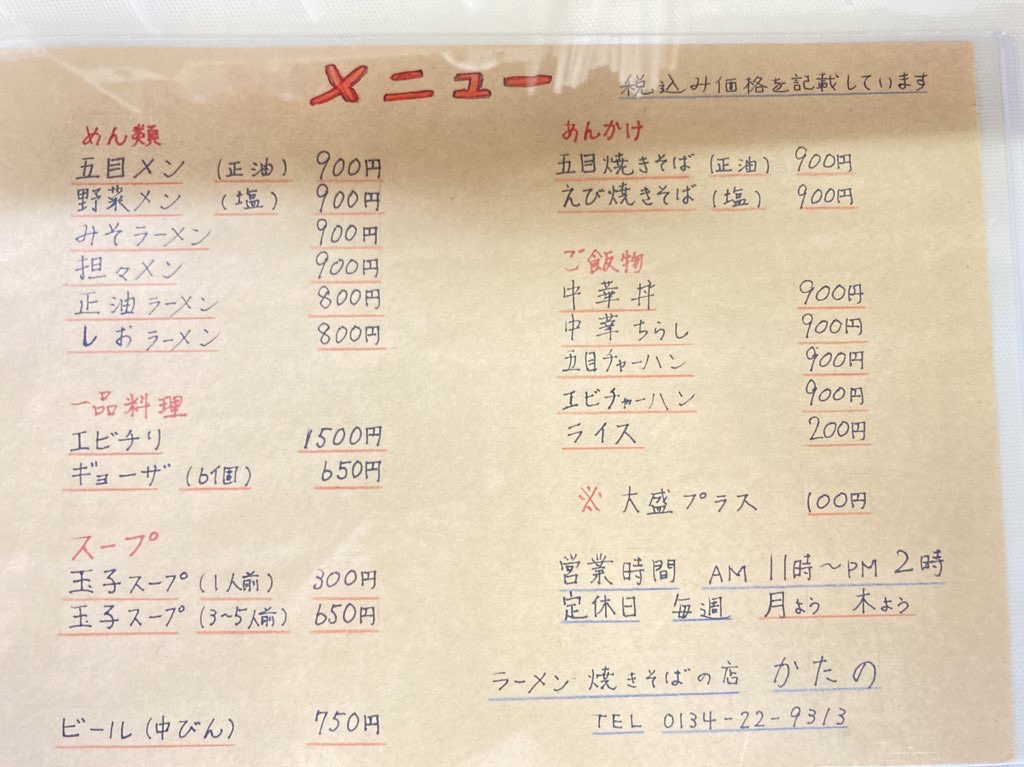 メニュー
税込み価格を記載しています
めん類
五目メン (正油) 900円
野菜メン (塩) 900円
みそラーメン 900円
担々メン 900円
正油ラーメン 800円
しおラーメン 800円
一品料理
エビチリ 1500円
ギョーザ (6個) 650円
スープ
玉子スープ (1人前) 300円
玉子スープ (3~5人前) 650円
ビール (中びん) 750円
あんかけ
五目焼きそば (正油) 900円
えび焼きそば (塩) 900円
ご飯物
中華丼 900円
中華ちらし 900円
五目チャーハン 900円
エビチャーハン 900円
ライス 200円
※ 大盛プラス 100円
営業時間 AM 11時~PM 2時
定休日 毎週 月よう 木よう
ラーメン 焼きそばの店 かたの
TEL 0134-22-9313